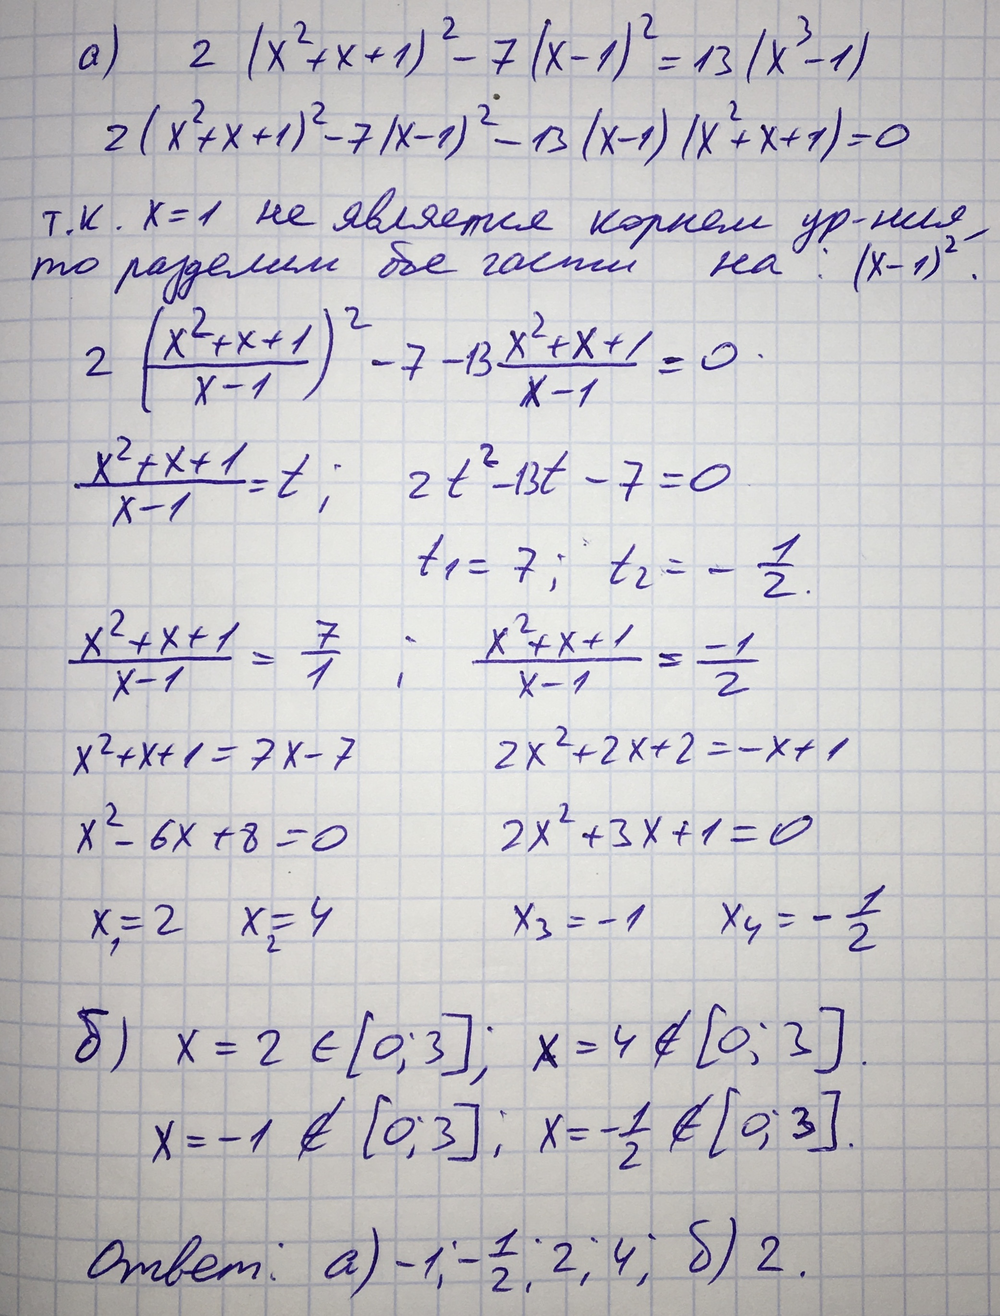 а) 2 (x²+x+1)² - 7 (x-1)² = 13 (x³-1)
2 (x²+x+1)² - 7 (x-1)² - 13 (x-1) (x²+x+1) = 0
т.к. x=1 не является корнем ур-ния,
то разделим обе части на : (x-1)².
2 ((x²+x+1)/(x-1))² - 7 - 13 (x²+x+1)/(x-1) = 0.
(x²+x+1)/(x-1) = t; 2t² - 13t - 7 = 0
t₁ = 7; t₂ = - 1/2.
(x²+x+1)/(x-1) = 7/1 ; (x²+x+1)/(x-1) = -1/2
x²+x+1 = 7x-7 2x²+2x+2 = -x+1
x²-6x+8=0 2x²+3x+1=0
x₁=2 x₂=4 x₃=-1 x₄=-1/2
б) x = 2 ∈ [0; 3]; x = 4 ∉ [0; 3].
x = -1 ∉ [0; 3]; x = -1/2 ∉ [0; 3].
Ответ: а) -1; -1/2; 2; 4; б) 2.